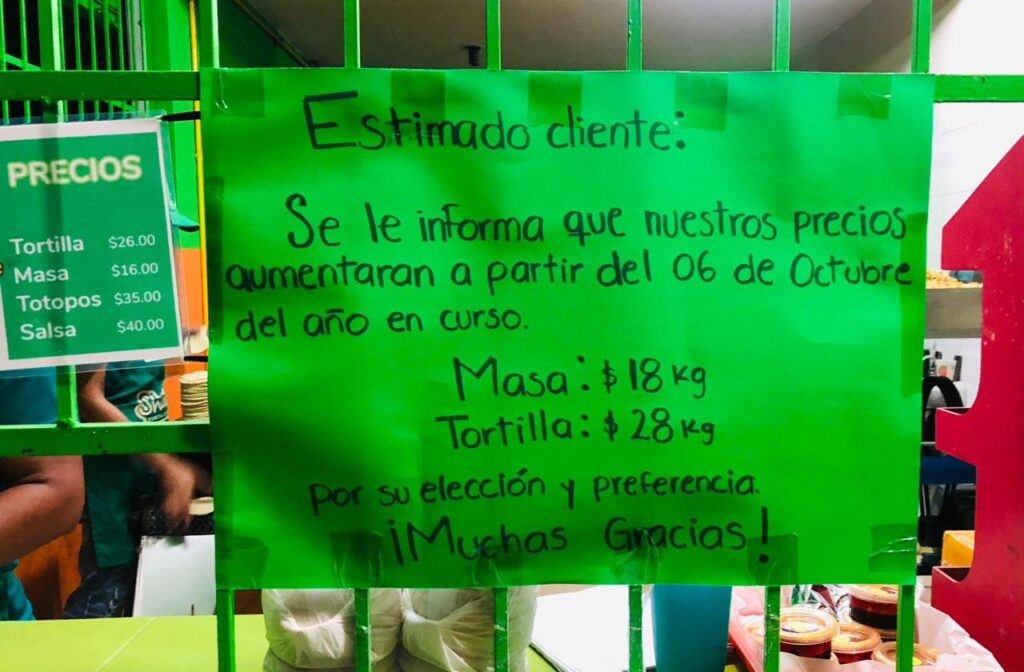 PRECIOS
Tortilla $26.00
Masa $16.00
Totopos $35.00
Salsa $40.00
Estimado cliente:
Se le informa que nuestros precios
aumentaran a partir del 06 de Octubre
del año en curso.
Masa: $18 kg
Tortilla: $28 kg
por su elección y preferencia.
¡Muchas Gracias!